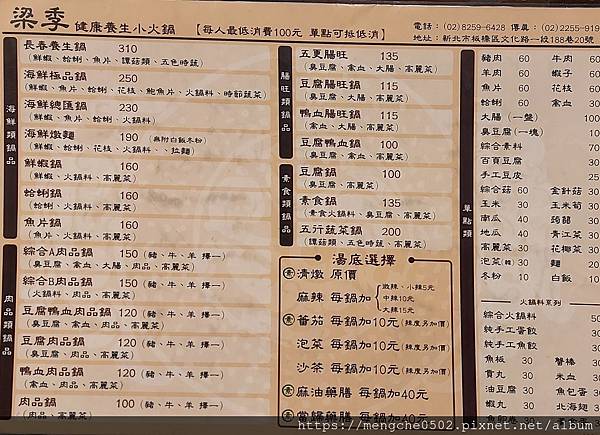 梁季 健康養生小火鍋 【每人最低消費100元 單點可抵低消】
電話：(02)8259-6428 傳真：(02)2255-919
地址：新北市板橋區文化路一段188巷20號
海鮮類鍋品
長春養生鍋 310
(鮮蝦、蛤蜊、魚片、譚菇類、五色時蔬)
海鮮極品鍋 250
(鮮蝦、魚片、蛤蜊、花枝、鮑魚片、火鍋料、時節蔬菜)
海鮮總匯鍋 230
(鮮蝦、蛤蜊、魚片、火鍋料)
海鮮燉麵 190 (無附白飯冬粉)
(鮮蝦、蛤蜊、花枝、火鍋料、、拉麵)
鮮蝦鍋 160
(鮮蝦、火鍋料、高麗菜)
蛤蜊鍋 160
(蛤蜊、火鍋料、高麗菜)
魚片鍋 160
(魚片、火鍋料、高麗菜)
肉品類鍋品
綜合A肉品鍋 150 (豬、牛、羊 擇一)
(臭豆腐、禽血、大腸、肉品、高麗菜)
綜合B肉品鍋 150 (豬、牛、羊 擇一)
(火鍋料、肉品、高麗菜)
豆腐鴨血肉品鍋 120 (豬、牛、羊 擇一)
(臭豆腐、禽血、肉品、高麗菜)
豆腐肉品鍋 120 (豬、牛、羊 擇一)
(臭豆腐、肉品、高麗菜)
鴨血肉品鍋 120 (豬、牛、羊 擇一)
(禽血、肉品、高麗菜)
肉品鍋 100 (豬、牛、羊 擇一)
(肉品、高麗菜)
腸旺類鍋品
五更腸旺 135
(臭豆腐、禽血、大腸、高麗菜)
豆腐腸旺鍋 115
(臭豆腐、大腸、高麗菜)
鴨血腸旺鍋 115
(禽血、大腸、高麗菜)
豆腐鴨血鍋 100
(臭豆腐、禽血、高麗菜)
素食類鍋品
豆腐鍋 100
(臭豆腐、高麗菜)
素食鍋 135
(素食火鍋料、臭豆腐、高麗菜)
五行蔬菜鍋 200
(譚菇類、五色時蔬、高麗菜)
湯底選擇
素 清燉 原價
麻辣 每鍋加 微辣、小辣5元
中辣10元
大辣15元
素 番茄 每鍋加10元 (辣度另加價)
泡菜 每鍋加10元 (辣度另加價)
沙茶 每鍋加10元 (辣度另加價)
素 麻油藥膳 每鍋加40元
素 當歸藥膳 每鍋加40元
單點類
豬肉 60 牛肉 60
羊肉 60 蝦子 60
魚片 60 花枝 60
蛤蜊 60 禽血 30
大腸(一盤) 100
臭豆腐(一塊) 10
綜合素料 70
百頁豆腐 30
手工豆皮 25
綜合菇 60 金針菇 30
玉米 30 玉米筍 30
南瓜 40 蒟蒻 30
地瓜 40 青江菜 30
高麗菜 30 花椰菜 30
泡菜 30 麵 20
冬粉 10 白飯 10
火鍋料系列
綜合火鍋料 50
純手工蛋餃 30
純手工魚餃 30
魚板 30 蟹棒 30
貢丸 30 米血 30
油豆腐 30 魚包蛋 30
蝦丸 30 北海翅 30
https://mengche0502.pixnet.net/album